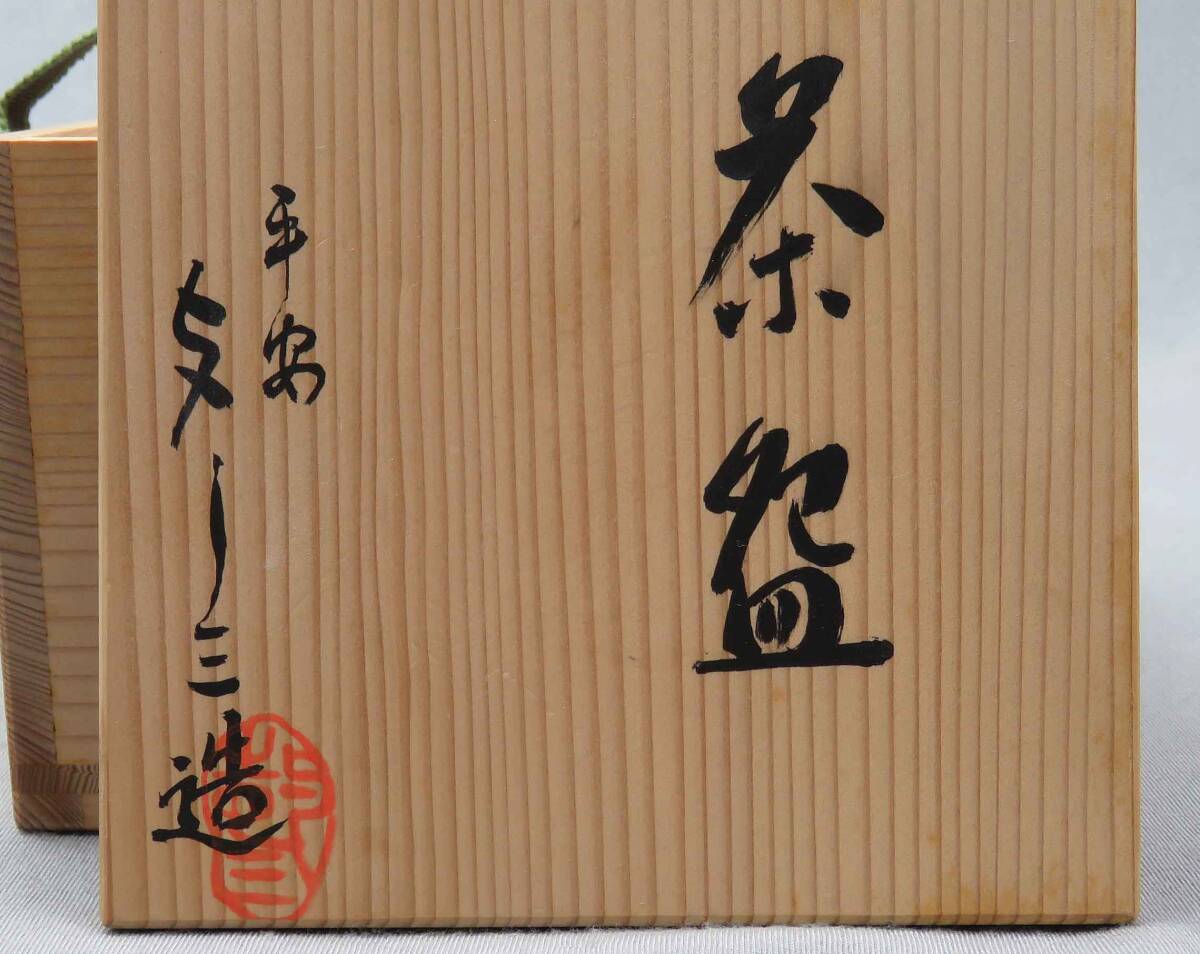 茶盌
平安
与し三造